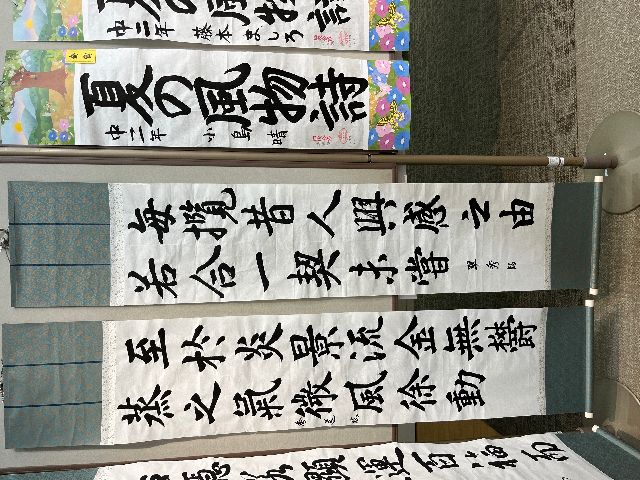 夏の風物詩
中二年 藤本ましろ
夏の風物詩
中二年 小島晴
毎攬昔人興感之由
若合一契未嘗
至於炎景流金無鬱
蒸之氣微風徐動